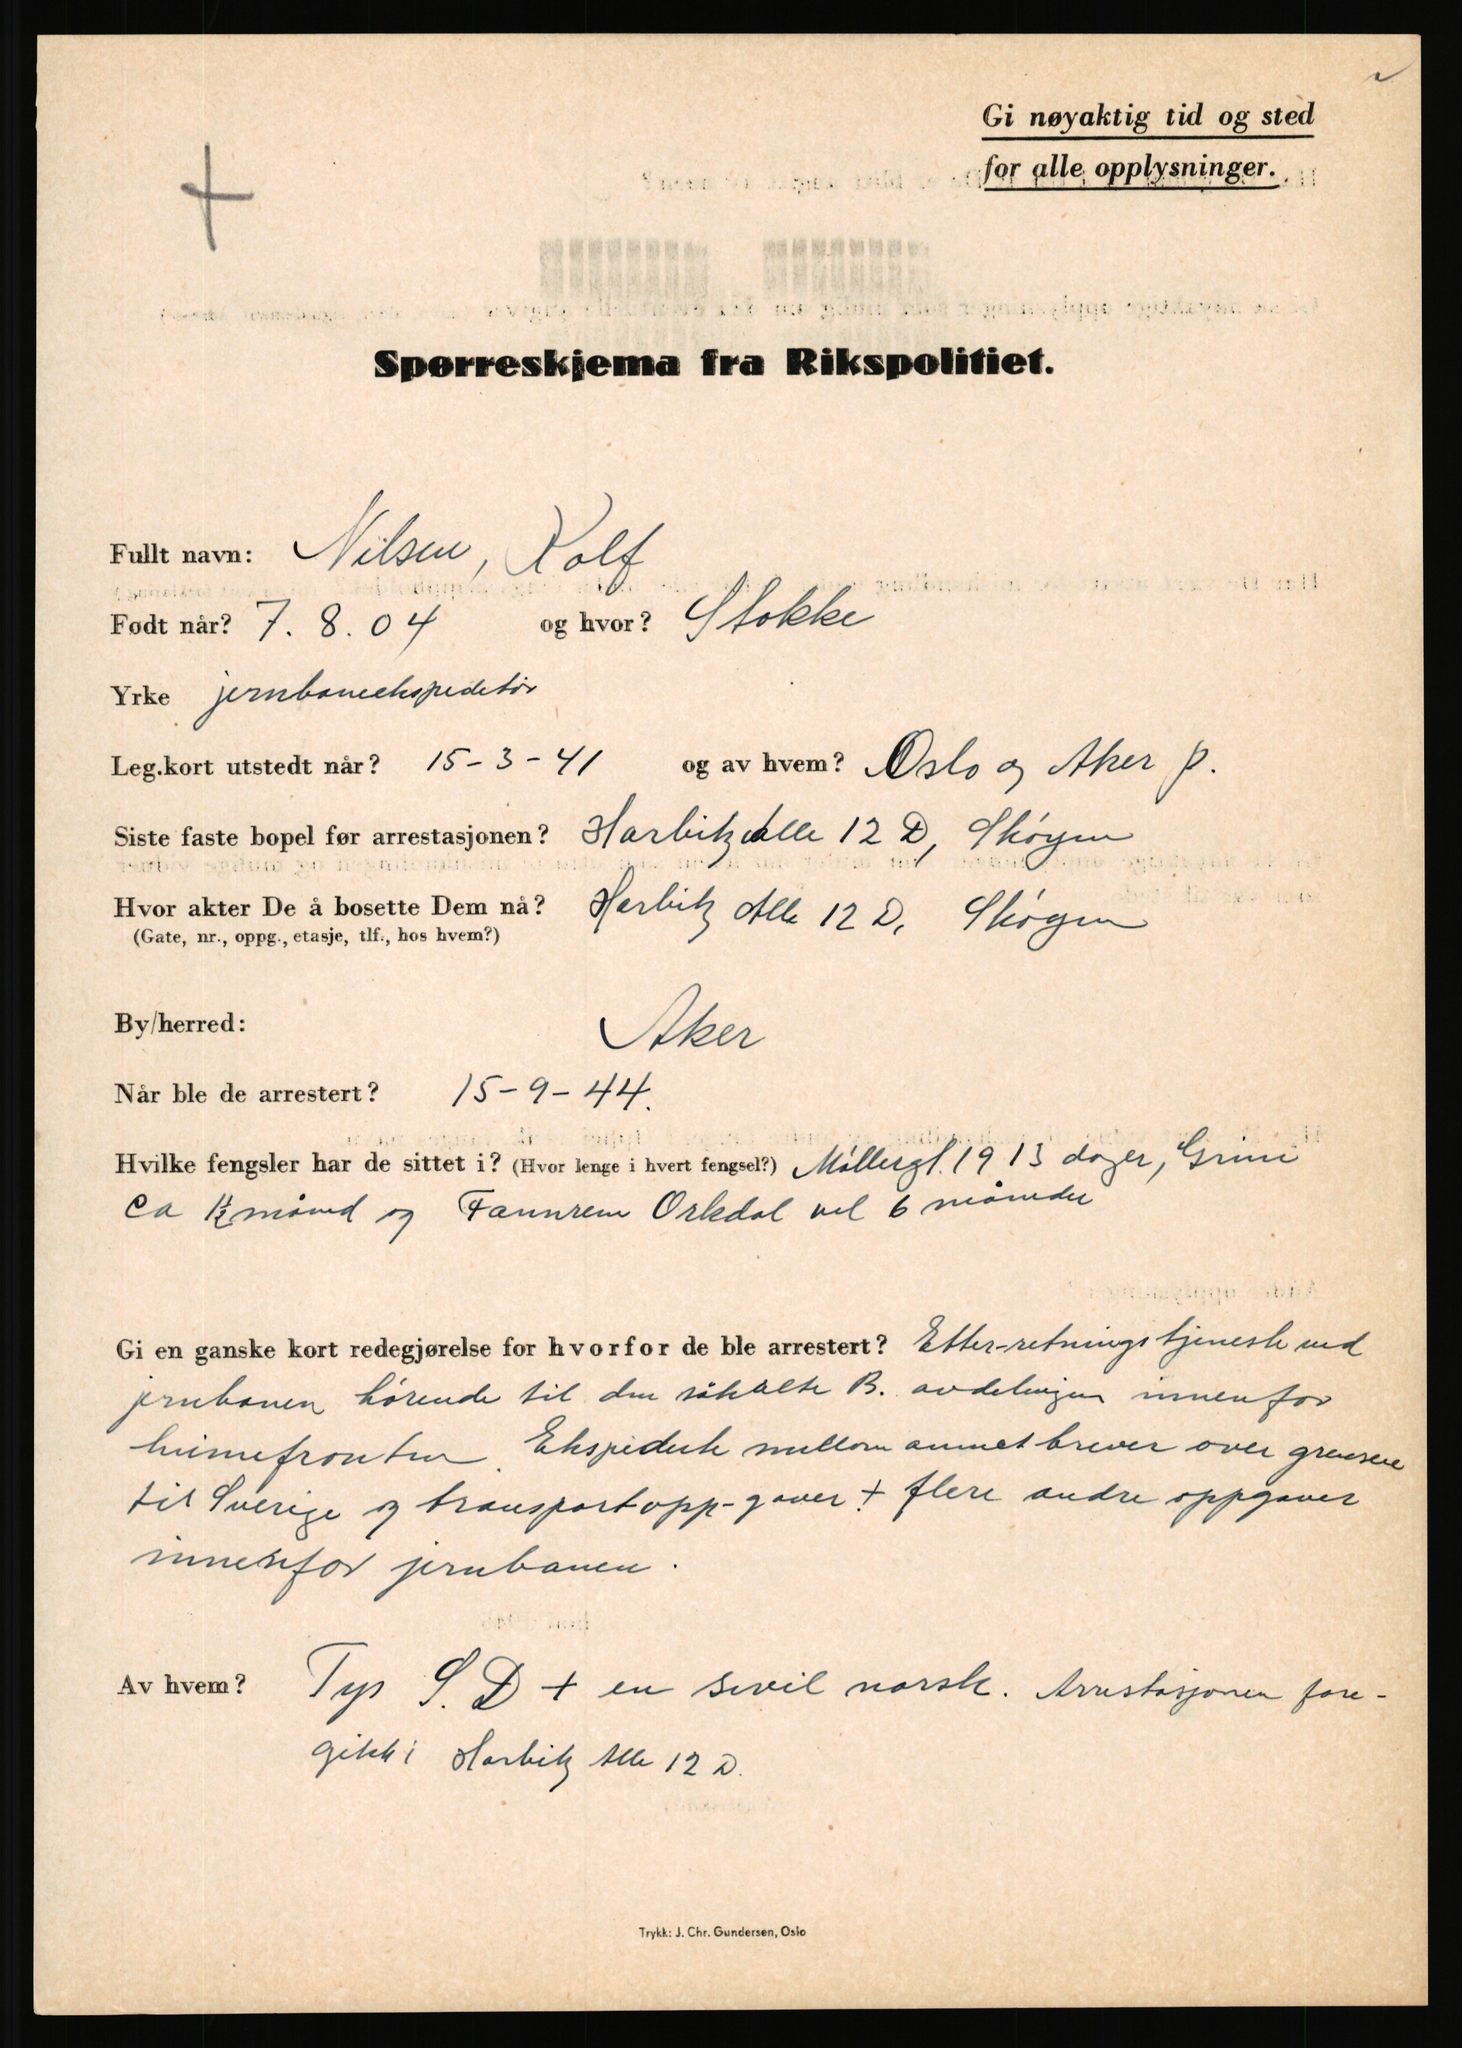 Gi nøyaktig tid og sted
for alle opplysninger.
Spørreskjema fra Rikspolitiet.
Fullt navn: Nilsen, Rolf
Født når? 7. 8. 04 og hvor? Stokke
Yrke jernbaneekspeditør
Leg.kort utstedt når? 15-3-41 og av hvem? Oslo og Aker p.
Siste faste bopel før arrestasjonen? Harbitz Alle 12 D, Skøyen
Hvor akter De å bosette Dem nå? Harbitz Alle 12 D. Skøyen
(Gate, nr., oppg., etasje, tlf., hos hvem?)
By/herred: Aker
Når ble de arrestert? 15-9-44.
Hvilke fengsler har de sittet i? (Hvor lenge i hvert fengsel?) Møllergt. 19 13 dager, Grini
ca 1½ måned og Fannrem Orkdal vel 6 måneder
Gi en ganske kort redegjørelse for hvorfor de ble arrestert? Etter-retningstjeneste ved
jernbanen hørende til den såkalte B. avdelingen innenfor
heimefronten. Ekspederte mellom annet brever over grensene
til Sverige og transportopp-gaver + flere andre oppgaver
innenfor jernbanen.
Av hvem? Tysk S.D + en sivil norsk. Arrestasjonen fore-
gikk i Harbitz Alle 12 D.
Trykk: J. Chr. Gundersen, Oslo